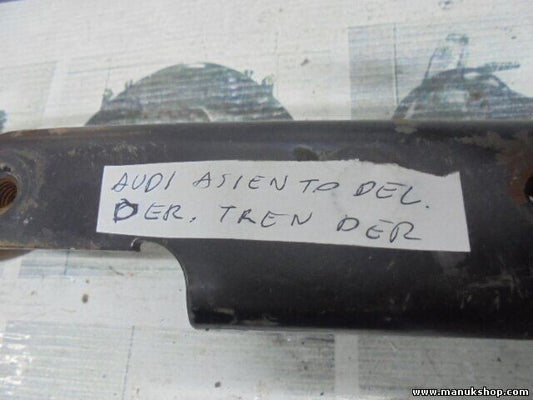 AUDI ASIENTO DEL.
DER. TREN DER
www.manukshop.com